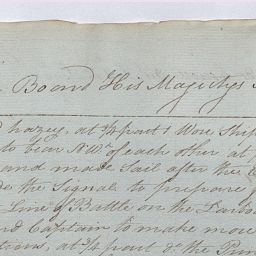 Board His Majestys
hazey, at ¼ past 1 Wore Ship
to bear NWt of each other at
and made Sail after the
the Signal to prepare
Line of Battle on the Larbo
Captain to make more
tions, at ¼ past do the Prin